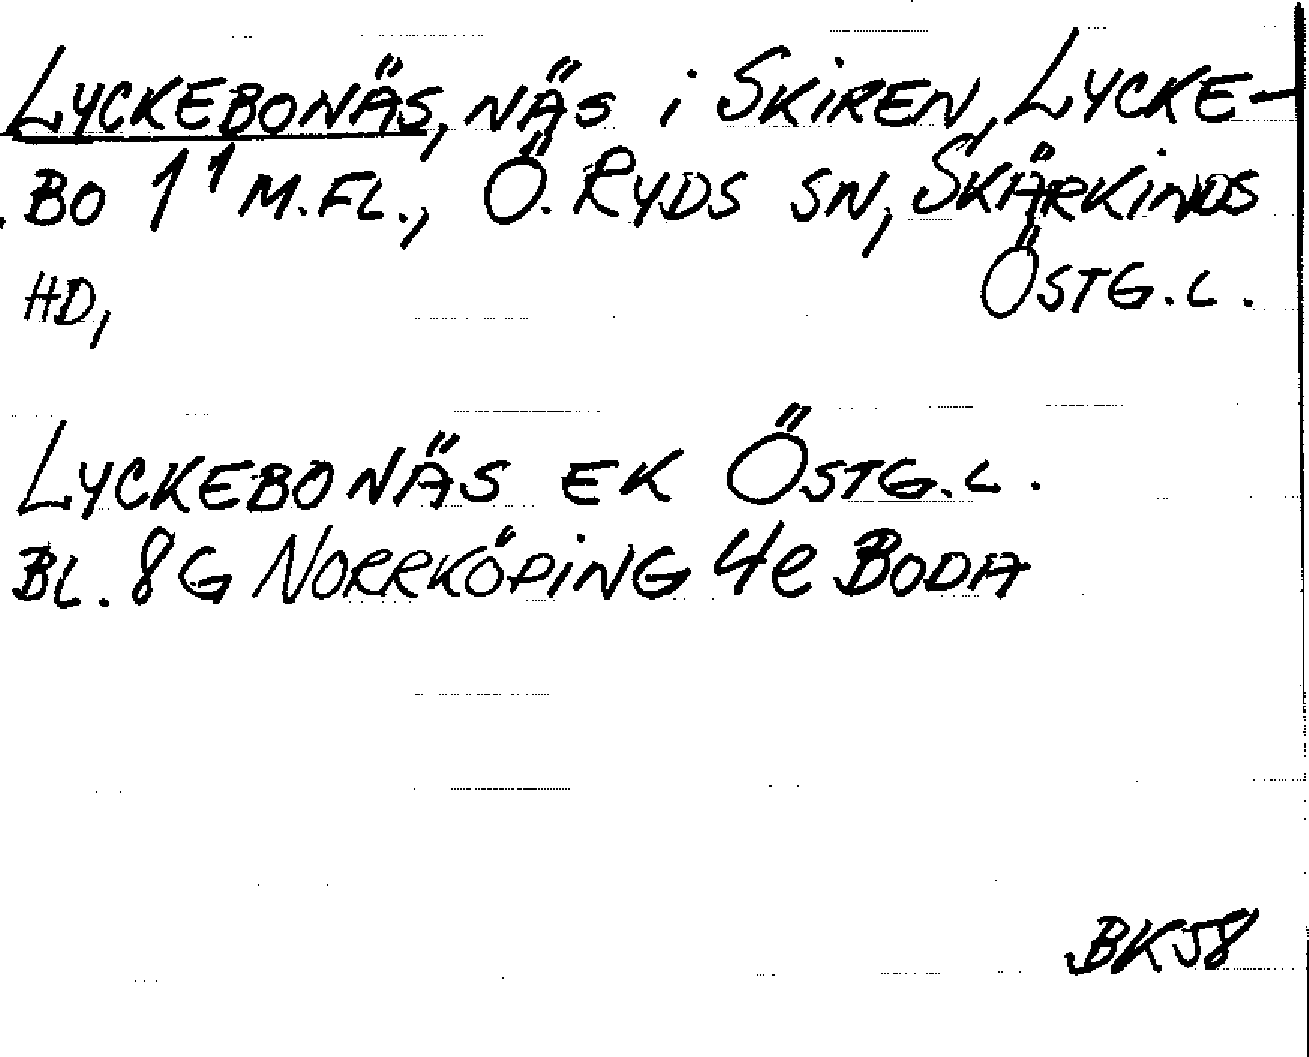 LYCKEBONÄS, NÄS i SKiREN, LYCKE-
BO 1¹ M.FL., Ö. RYDS SN, SKÄRKiNDS
HD, ÖSTG.L.
LYCKEBONÄS EK ÖSTG.L.
BL. 8G NORRKÖPiNG 4e BODA
BK58